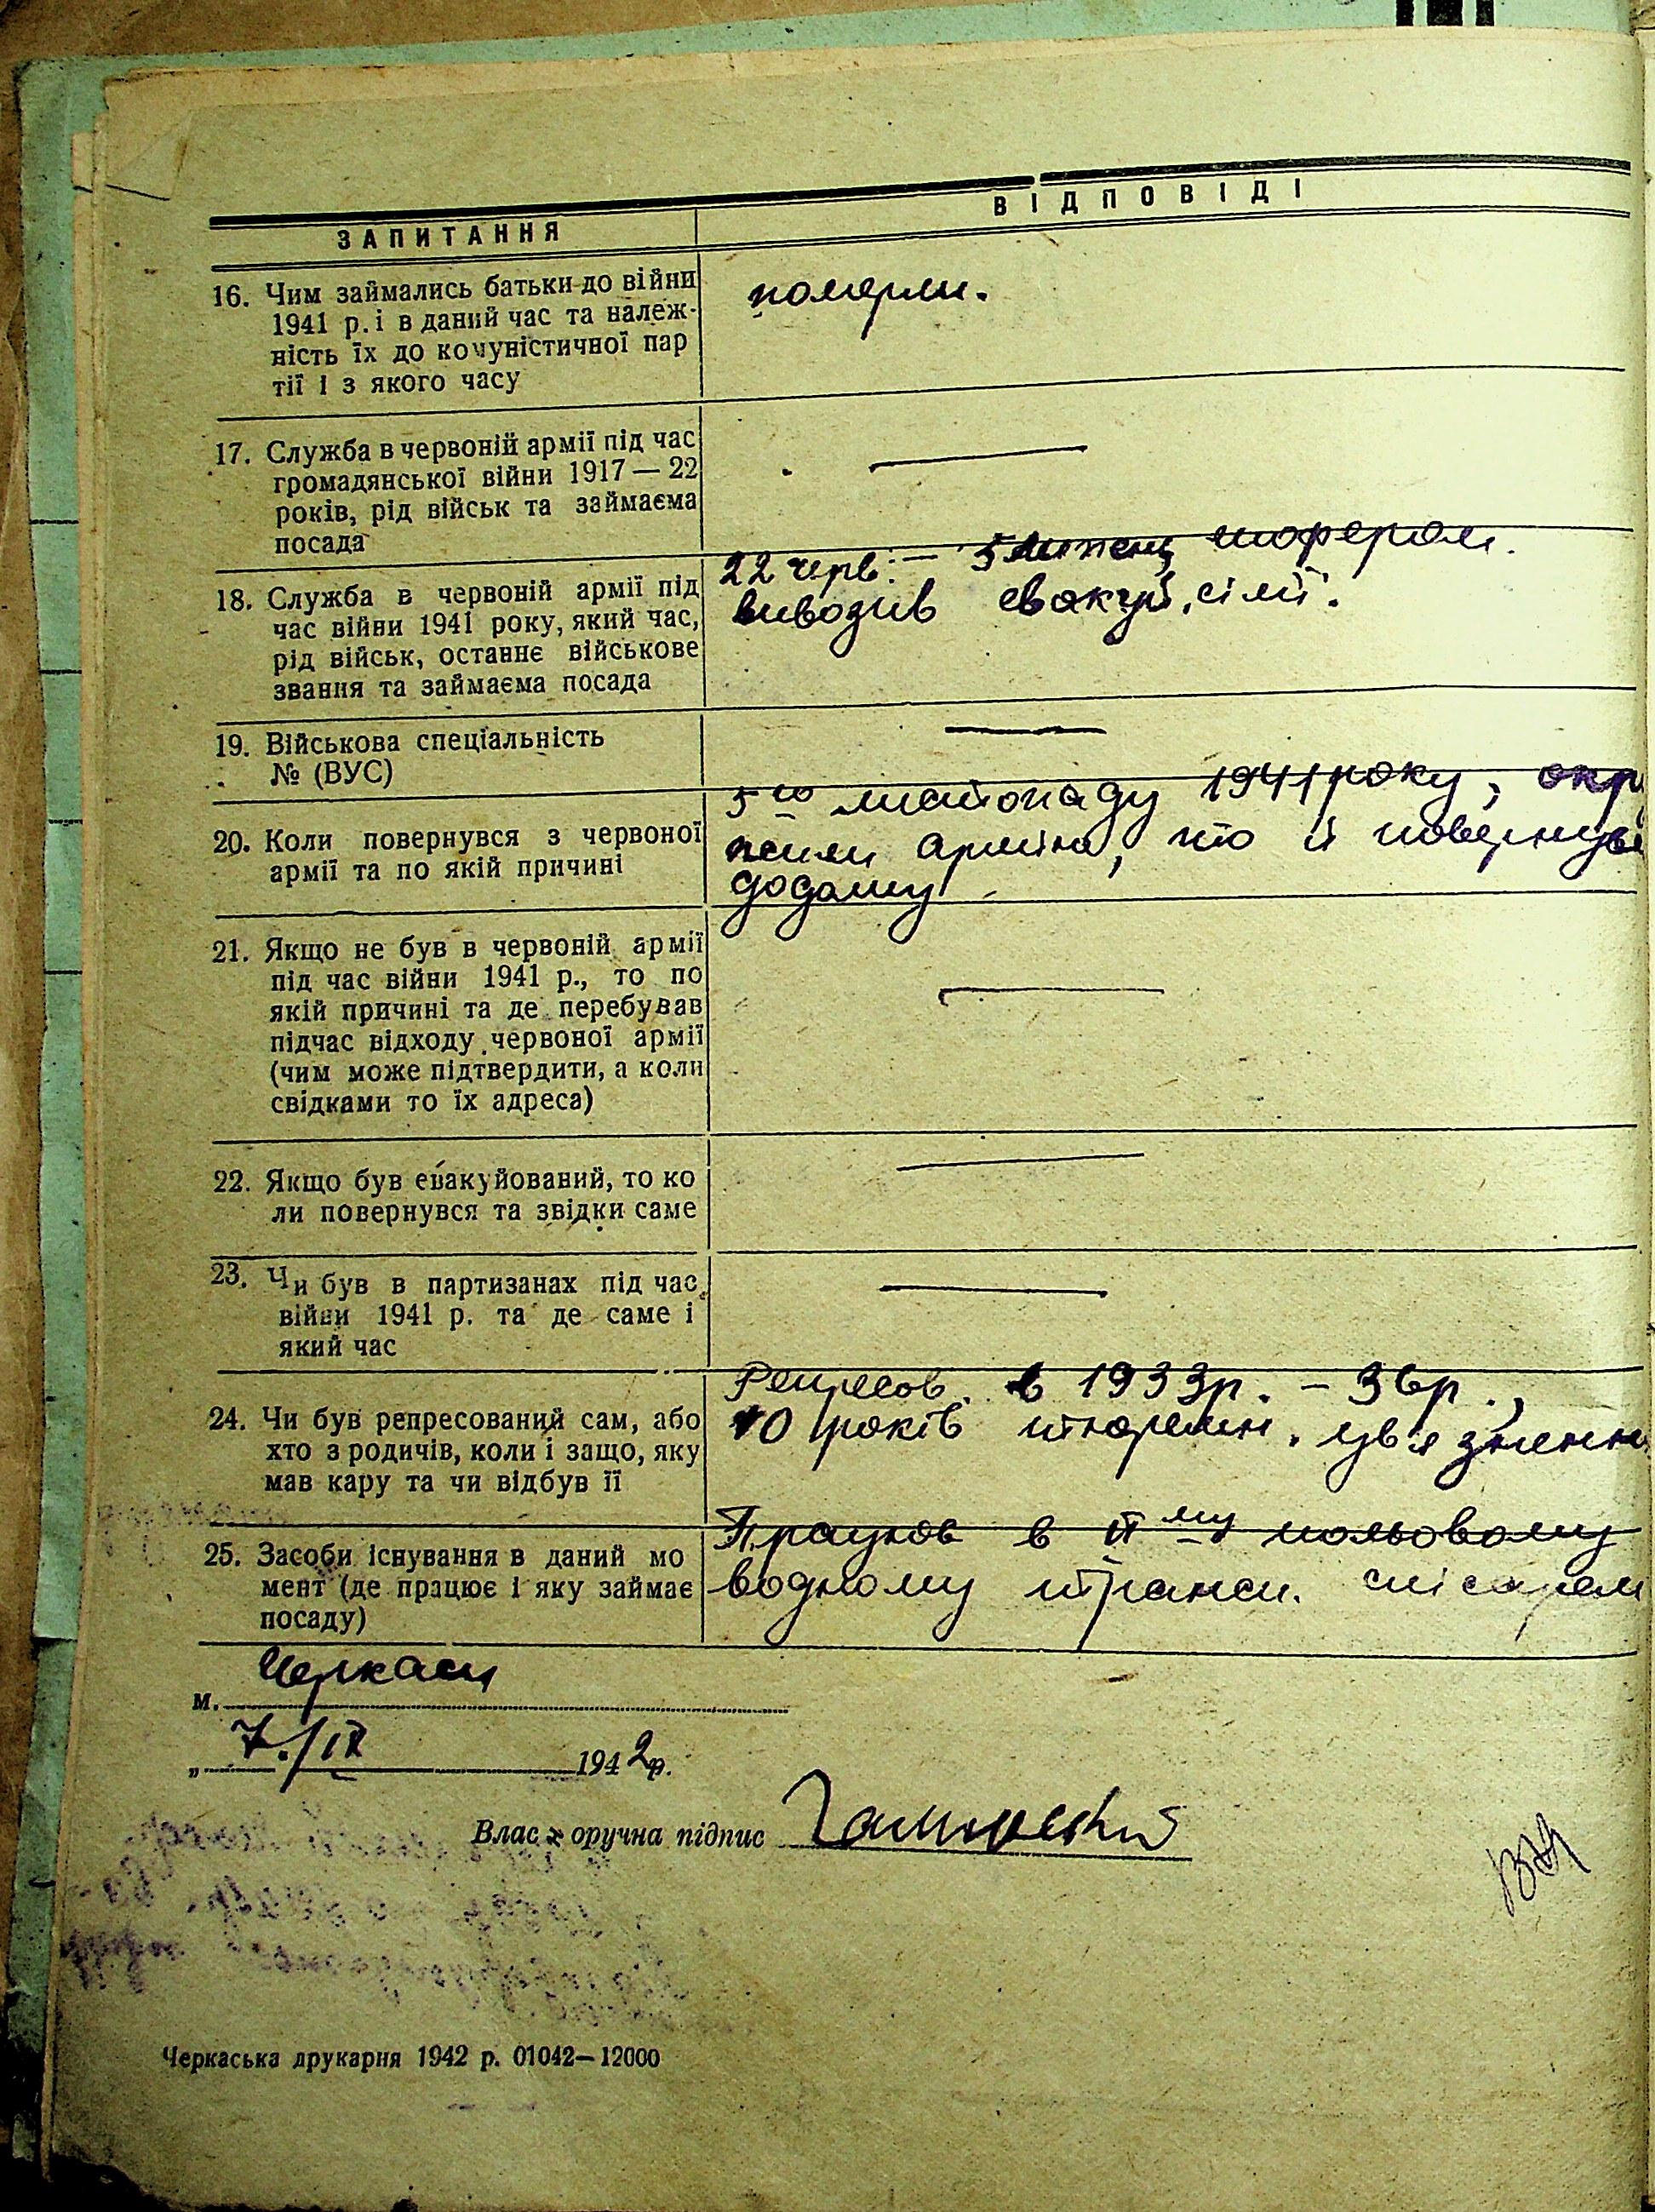 ВІДПОВІДІ
ЗАПИТАННЯ
16. Чим займались батьки до війни
1941 р. і в даний час та належ-
ність їх до комуністичної пар
тії і з якого часу
померли.
17. Служба в червоній армії під час
громадянської війни 1917 — 22
років, рід військ та займаєма
посада
—
18. Служба в червоній армії під
час війни 1941 року, який час,
рід військ, останнє військове
звання та займаєма посада
22 черв. – 5 шофером.
вивозив евакуй. сімї.
19. Військова спеціальність
№ (ВУС)
—
20. Коли повернувся з червоної
армії та по якій причині
5го листопаду 1941 року, окр
жили армію, то й повернувс
додому
21. Якщо не був в червоній армії
під час війни 1941 р., то по
якій причині та де перебував
підчас відходу червоної армії
(чим може підтвердити, а коли
свідками то їх адреса)
—
22. Якщо був евакуйований, то ко
ли повернувся та звідки саме
—
23. Чи був в партизанах під час
війни 1941 р. та де саме і
який час
—
24. Чи був репресований сам, або
хто з родичів, коли і защо, яку
мав кару та чи відбув її
Репресов. в 1933р. – 36р.,
10 років тюремн. увязненн
25. Засоби існування в даний мо
мент (де працює і яку займає
посаду)
Працюв в ІІму польовому
водному трансп. слісарем
м. Черкаси
„ 7./IX 1942р.
Власоручна підпис
Черкаська друкарня 1942 р. 01042—12000